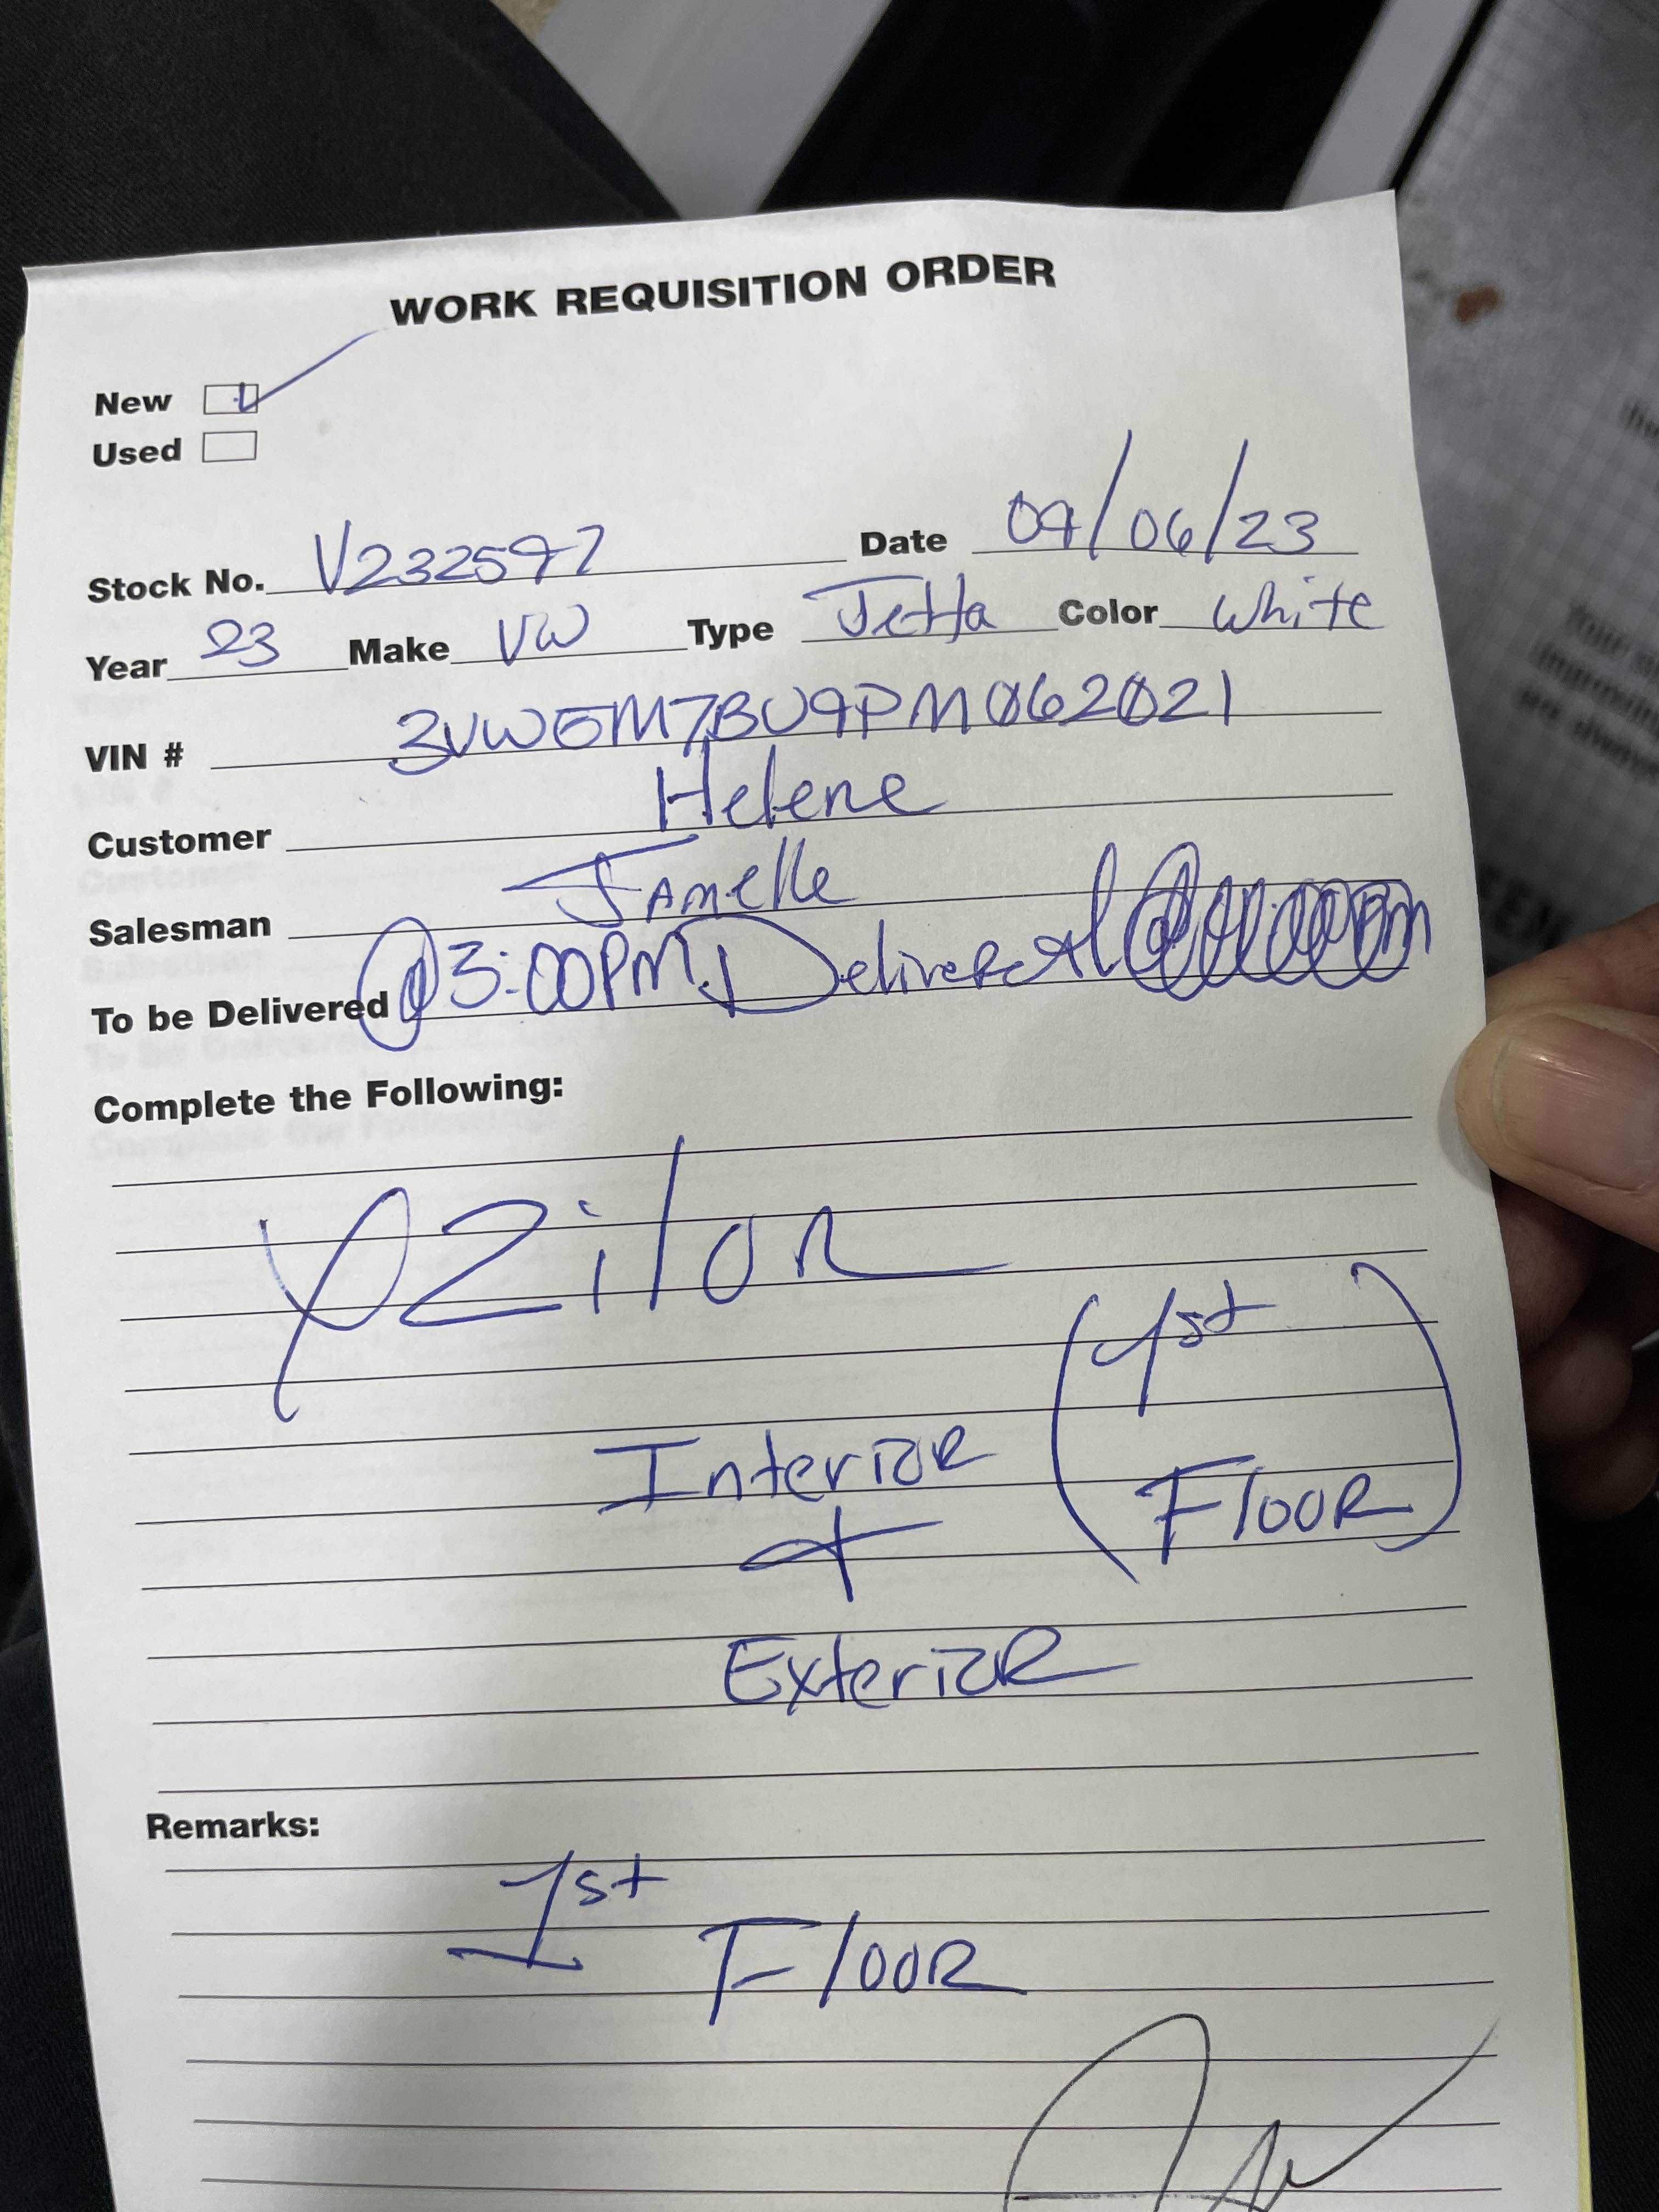 WORK REQUISITION ORDER
New
Used
Stock No. V232597 Date 09/06/23
Year 23 Make VW Type Jetta Color White
VIN # 3VW5M7BU9PM062021
Customer Helene
Salesman Jamelle
To be Delivered @3:00PM Delivered
Complete the Following:
XZilon
(1st
Interior
Floor)
+
Exterior
Remarks:
1st
Floor